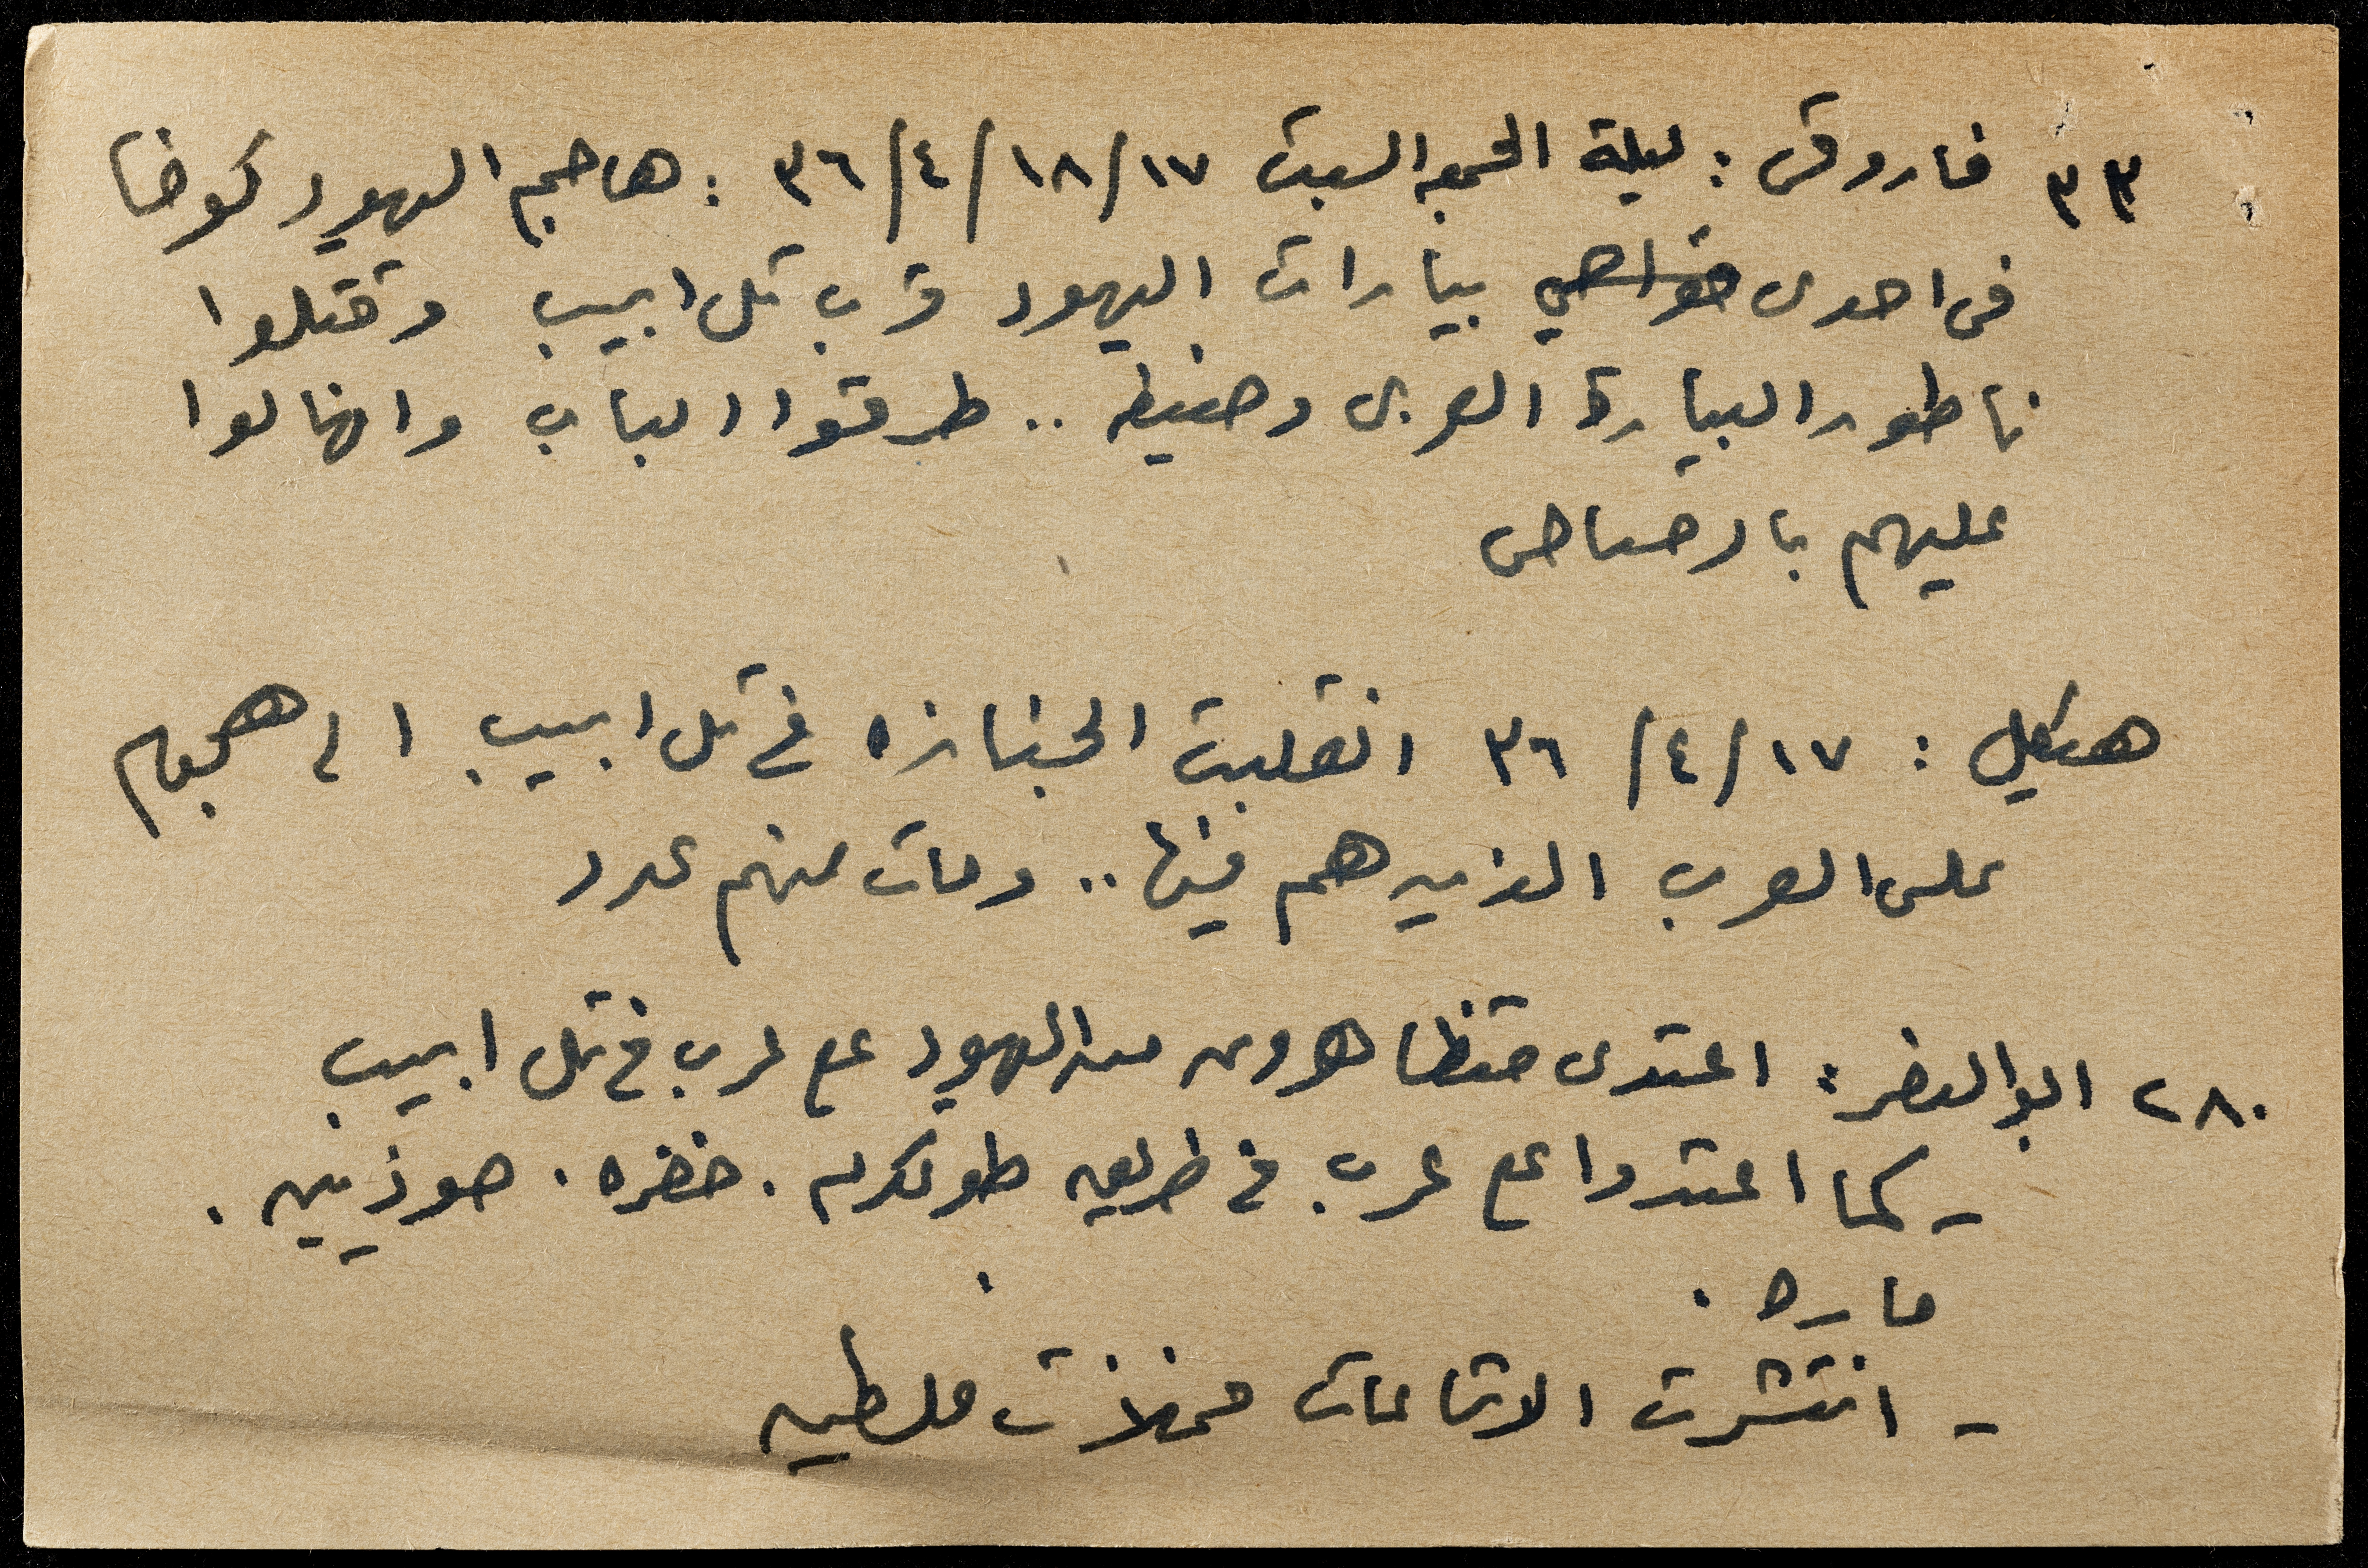 ٣٣ فاروق : ليلة الجمعه السبت ١٧/١٨/٤/٣٦ : هاجم اليهود كوخا
فى احدى ضواحي بيارات اليهود قرب تل ابيب وقتلوا
ناطور البيارة العربى وضيفه .. طرقوا الباب وانهالوا
عليهم بالرصاص
هيكل : ١٧/٤/٣٦ انقلبت الجنازه فى تل ابيب الى هجوم
على العرب الذين هم فيها .. ومات منهم عدد
٢٨٠ ابو النصر : اعتدى متظاهرون من اليهود على عرب فى تل ابيب
- كما اعتدوا على عرب فى طريق طولكرم . خضره .
- انتشرت الاشاعات فى فلسطين